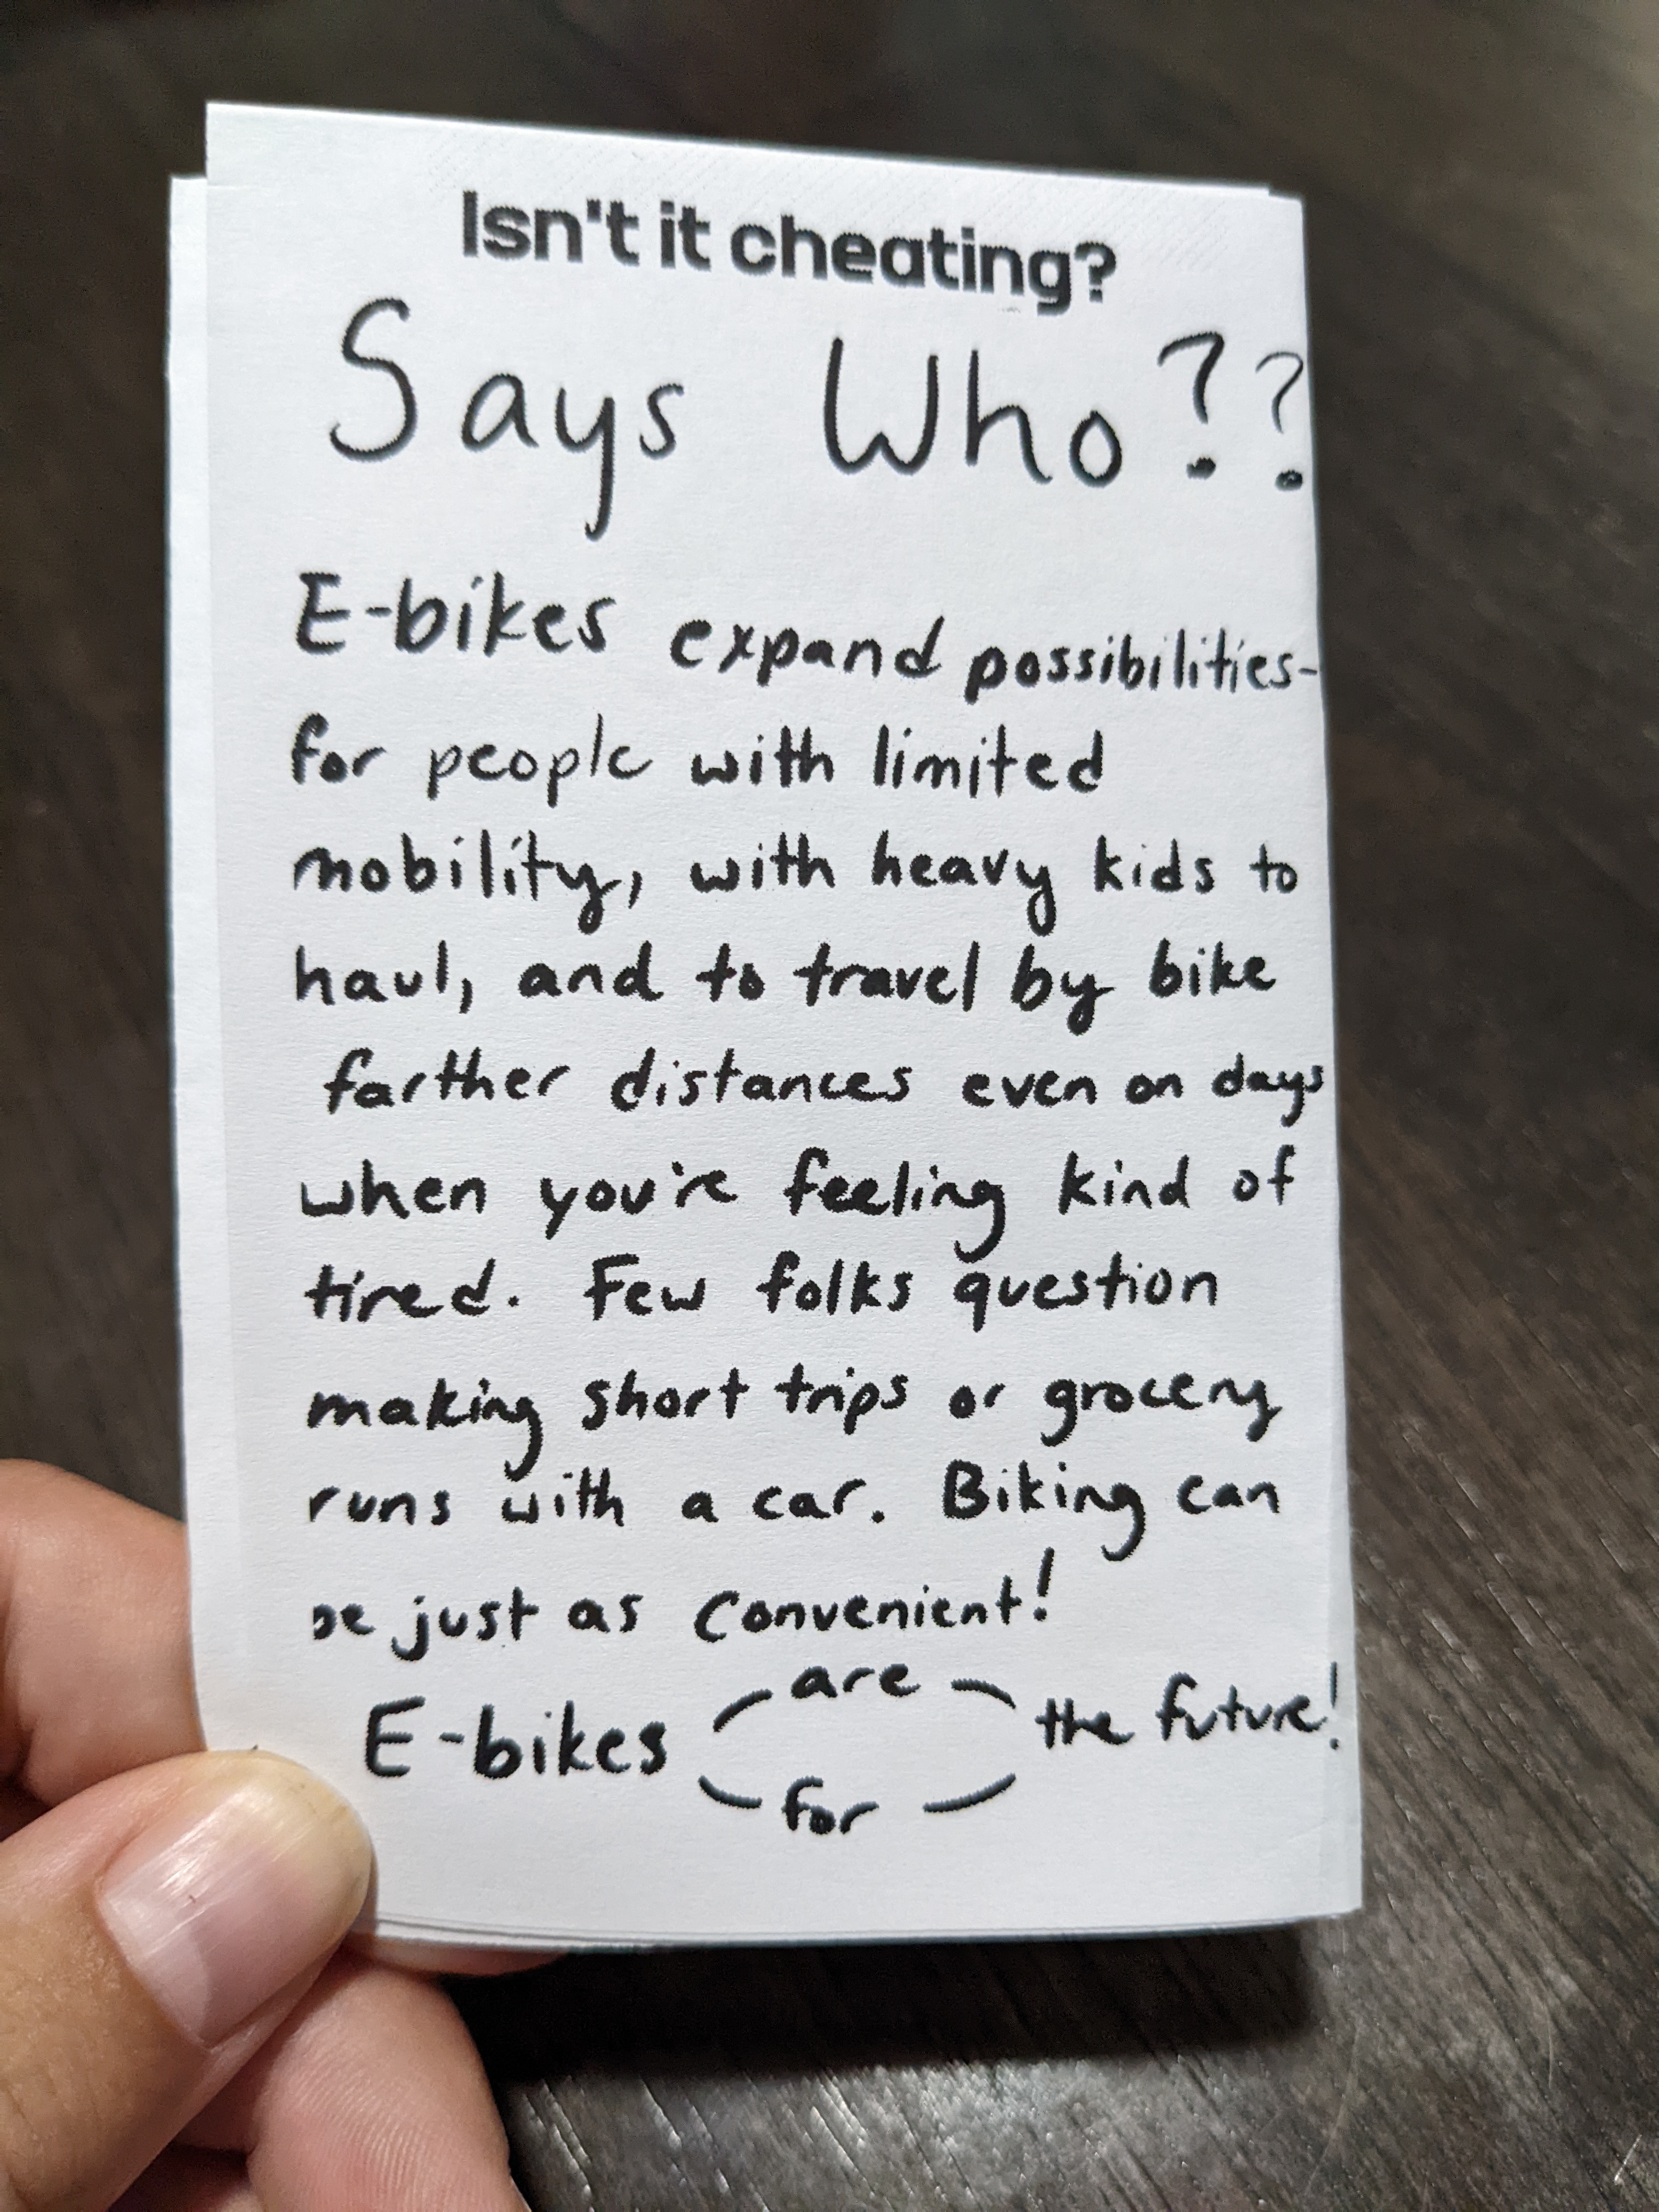 Isn't it cheating?
Says Who??
E-bikes expand possibilities-
for people with limited
mobility, with heavy kids to
haul, and to travel by bike
farther distances even on days
when you're feeling kind of
tired. Few folks question
making short trips or grocery
runs with a car. Biking can
be just as convenient!
are
E-bikes the future!
for